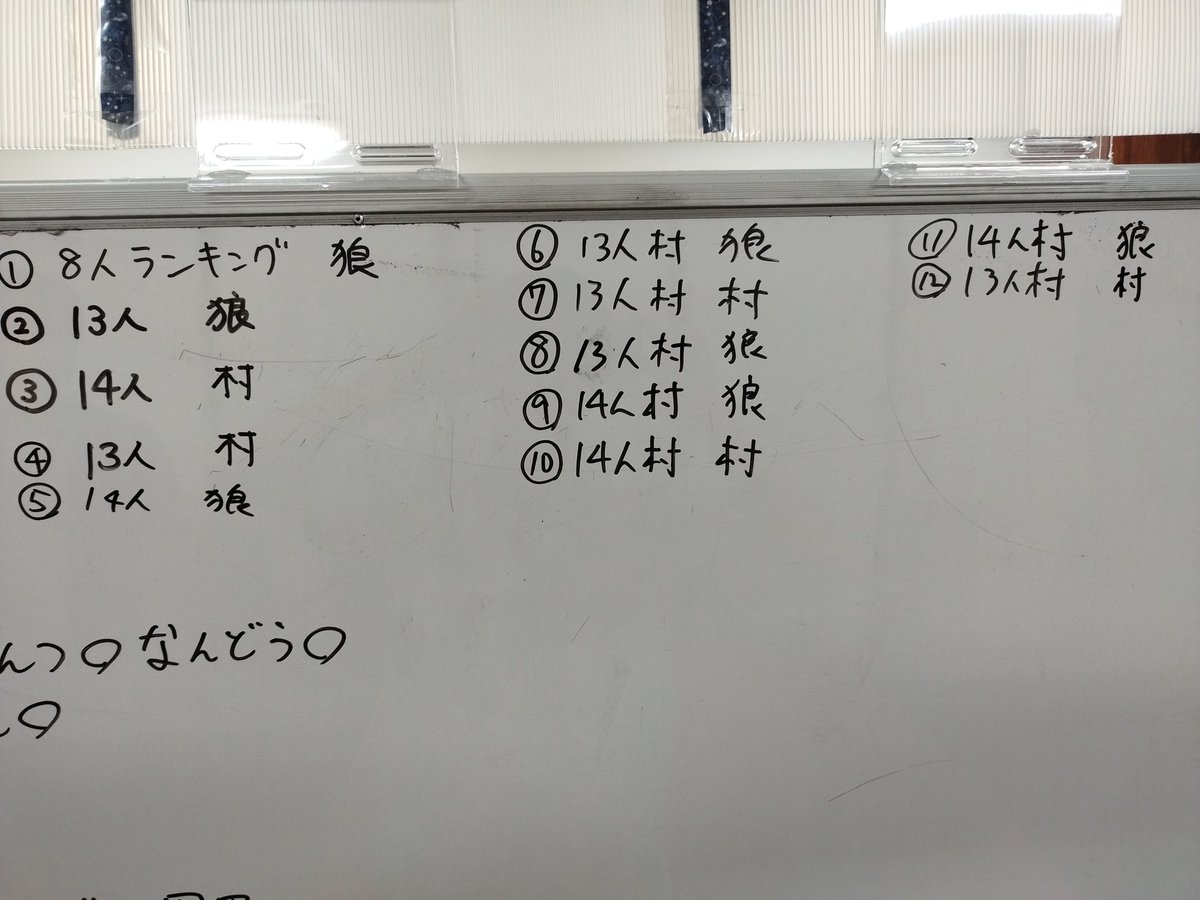 ① 8人ランキング 狼
② 13人 狼
③ 14人 村
④ 13人 村
⑤ 14人 狼
⑥ 13人村 狼
⑦ 13人村 村
⑧ 13人村 狼
⑨ 14人村 狼
⑩ 14人村 村
⑪ 14人村 狼
⑫ 13人村 村
んつ○ なんどう○